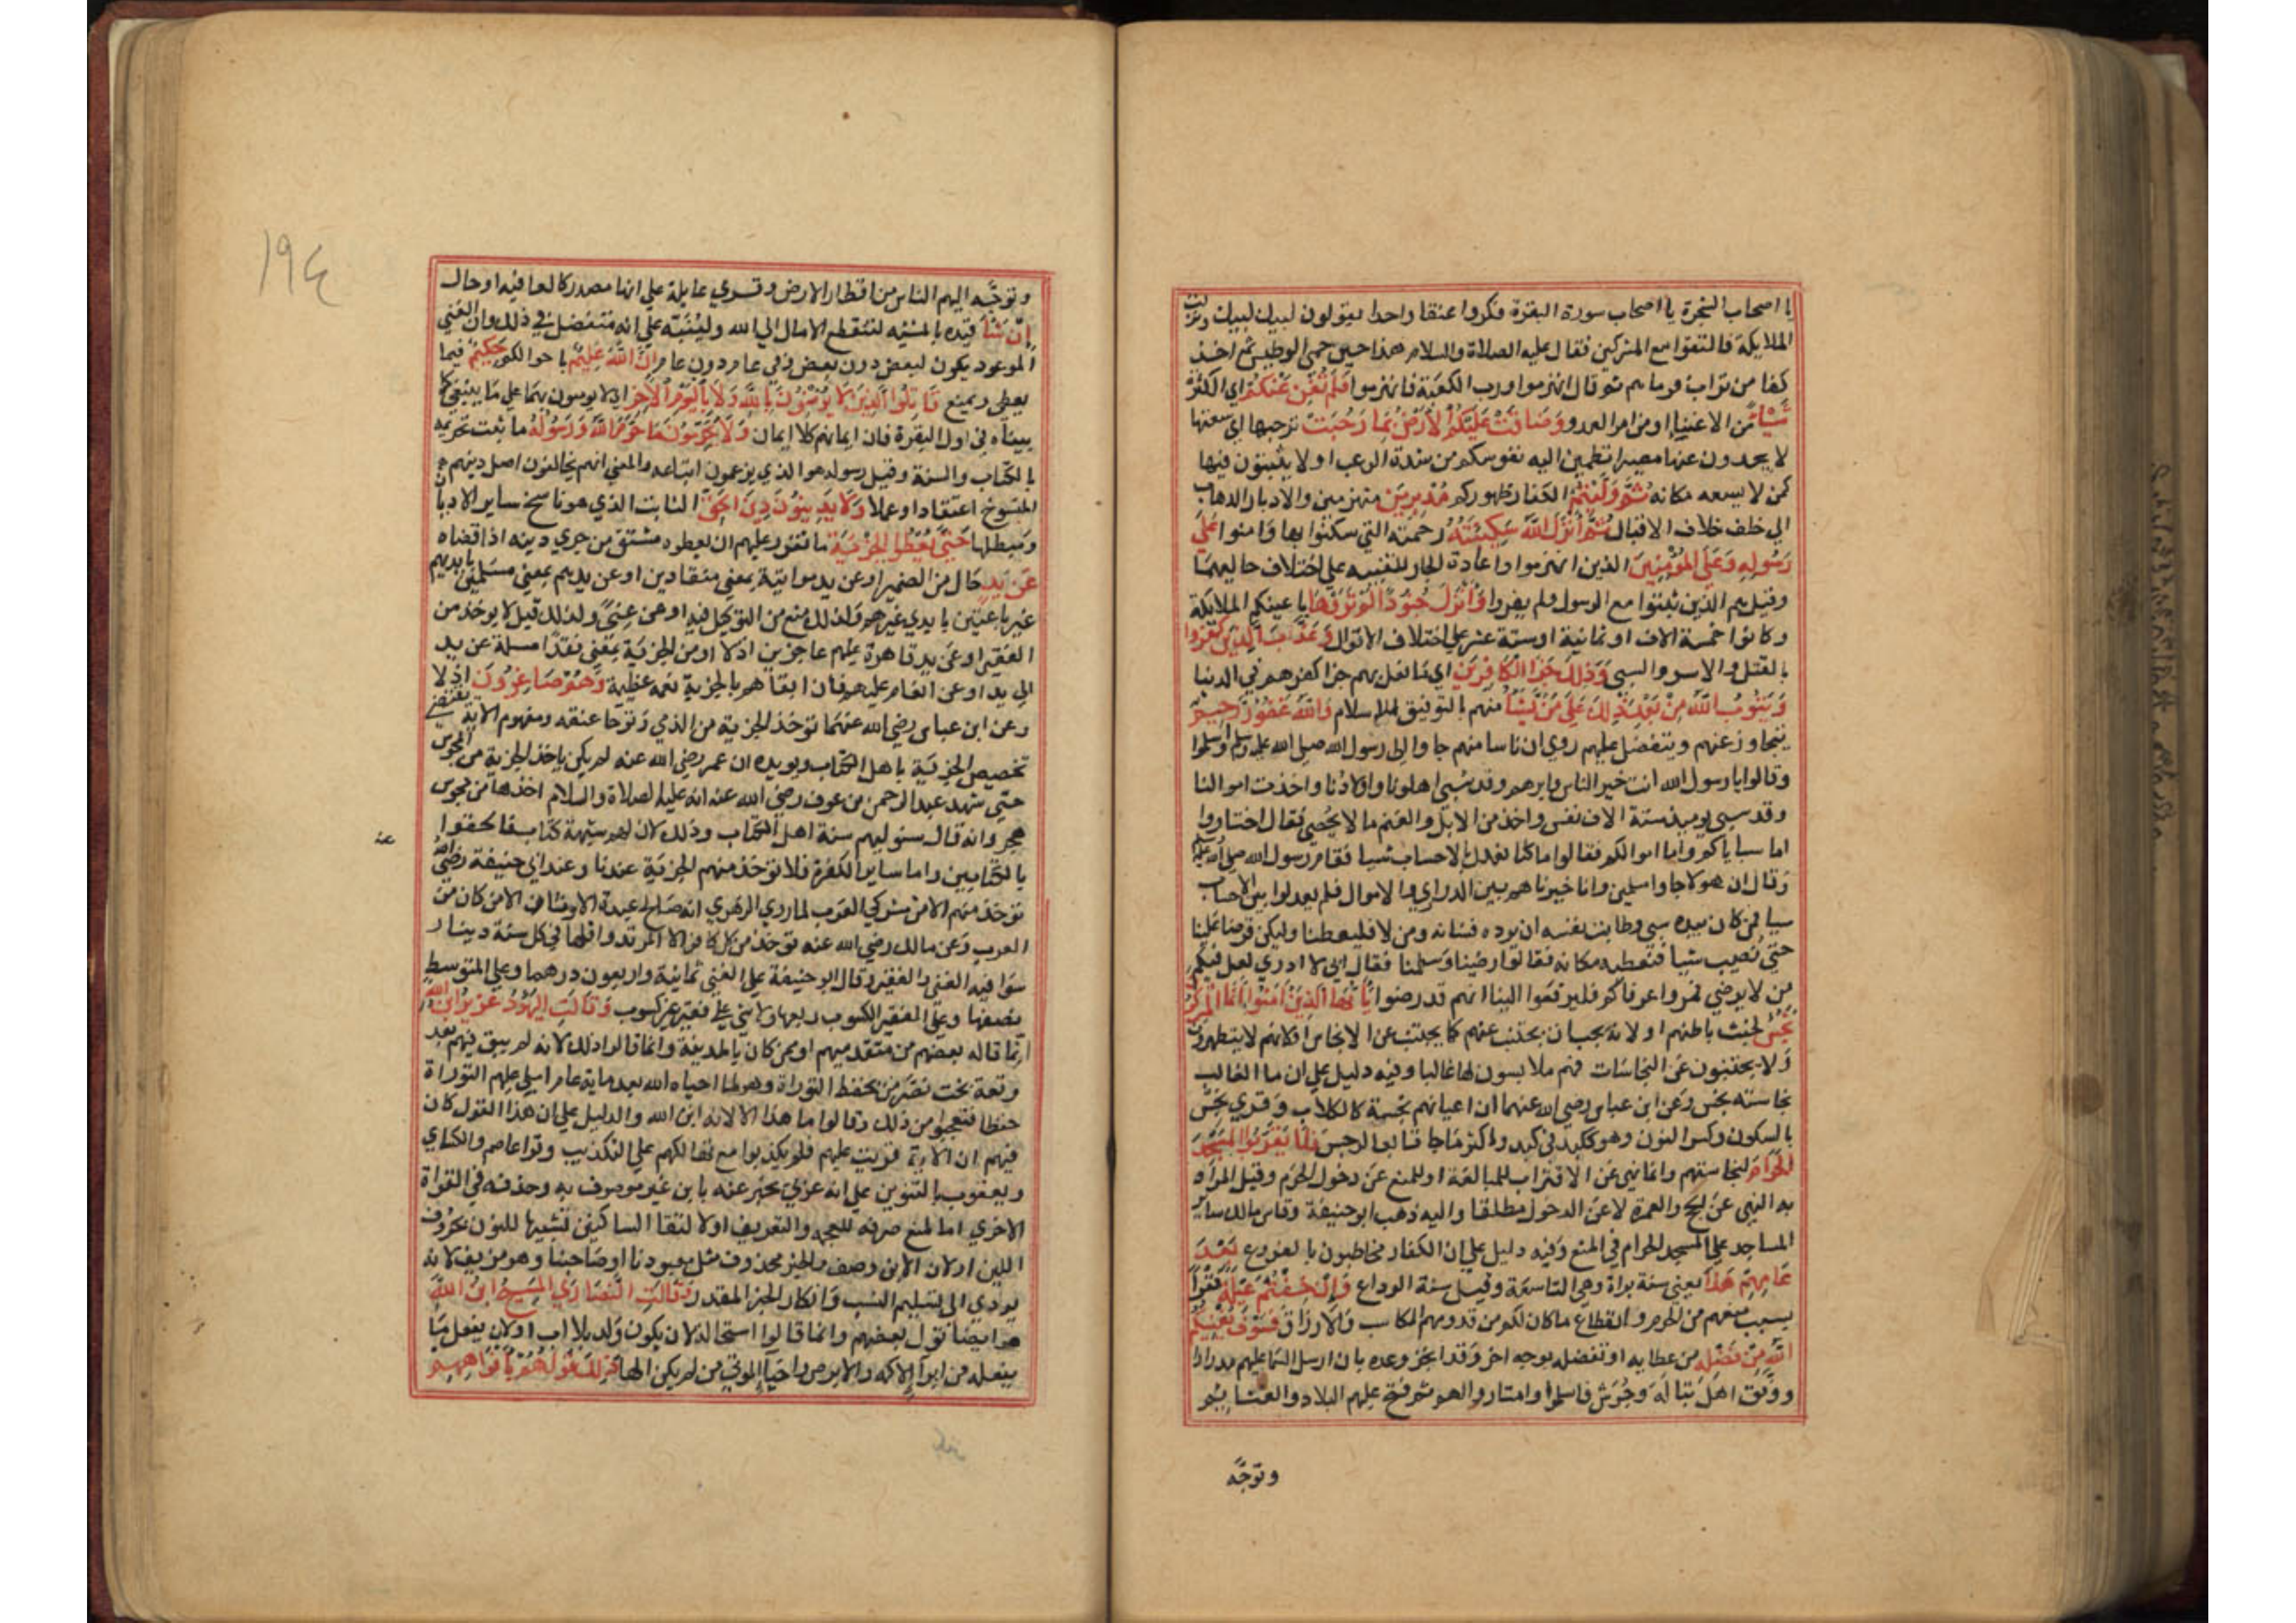 يا اصحاب الشجرة يا اصحاب سورة البقرة فكروا عنقا واحدا يقولون لبيك لبيك ونزلت
الملايكة فالتقوا مع المشركين فقال عليه الصلاة والسلام هذا حين حمي الوطيس ثم اخذ
كفا من تراب فرماهم ثم قال انهزموا ورب الكعبة فانهزموا فَلَمْ تُغْنِ عَنْكُمْ اي الكثرة
شَيْئًا من الاغنيا او من امر العدو وَضَاقَتْ عَلَيْكُمُ الْاَرْضُ بِمَا رَحُبَتْ برحبها اي سعتها
لا يجدون عنها مصيرا تطمين اليه نفوسكم من شدة الرعب او لا يثبتون فيها
كمن لا يسعه مكانه ثُمَّ وَلَّيْتُمْ الكفار ظهوركم مُدْبِرِينَ منهزمين والادبار الذهاب
الي خلف خلاف الاقبال ثُمَّ أَنْزَلَ اللَّهُ سَكِينَتَهُ رحمته التي سكنوا بها وامنوا عَلَى
رَسُولِهِ وَعَلَى الْمُؤْمِنِينَ الذين انهزموا واعادة الجار للتنبيه علي اختلاف حاليهما
وقيل هم الذين ثبتوا مع الرسول ولم يفروا وَأَنْزَلَ جُنُودًا لَمْ تَرَوْهَا باعينكم الملايكة
وكانوا خمسة الاف او ثمانية او ستة عشر علي اختلاف الاقوال وَعَذَّبَ الَّذِينَ كَفَرُوا
بالقتل والاسر والسبي وَذَلِكَ جَزَا الْكَافِرِينَ اي ما فعل بهم جزا كفرهم في الدنيا
وَيَتُوبُ اللَّهُ مِنْ بَعْدِ ذَلِكَ عَلَى مَنْ يَشَأُ منهم بالتوفيق للاسلام وَاللَّهُ غَفُورٌ رَحِيمٌ
يتجاوز عنهم ويتفضل عليهم روي ان ناسا منهم جاوا الي رسول الله صلي الله عليه وسلم واسلموا
وقالوا يا رسول الله انت خير الناس وابرهم وقد سبي اهلونا واولادنا واخذت اموالنا
وقد سبي يوميذ ستة الاف نفس واخذ من الابل والغنم ما لا يحصي فقال اختاروا
اما سباياكم واما اموالكم فقالوا ما كنا نعدل بالاحساب شيا فقام رسول الله صلي الله عليه
وقال ان هولا جاوا مسلمين وانا خيرناهم بين الذراري والاموال فلم يعدلوا بين الاحساب
شيا فمن كان بيده سبي وطابت نفسه ان يرده فشانه ومن لا فليعطنا وليكن قرضا علينا
حتي نصيب شيا فنعطيه مكانه فقالوا رضينا وسلمنا فقال اني لا ادري لعل فيكم
من لا يرضي فمروا عرفاكم فليرفعوا الينا انهم قد رضوا يَا أَيُّهَا الَّذِينَ آمَنُوا إِنَّمَا الْمُشْرِكُونَ
نَجَسٌ لخبث باطنهم او لانه يجب ان يجتنب عنهم كما يجتنب عن الانجاس او لانهم لا يتطهرون
ولا يجتنبون عن النجاسات فهم ملابسون لها غالبا وفيه دليل علي ان ما الغالب
نجاسته نجس وعن ابن عباس رضي الله عنهما ان اعيانهم نجسة كالكلاب وقري نجس
بالسكون وكسر النون وهو ككبد في كبد واكثر ما جا تابعا لرجس فَلَا يَقْرَبُوا الْمَسْجِدَ
الْحَرَامَ لنجاستهم وانما نهي عن الاقتراب للمبالغة او للمنع عن دخول الحرم وقيل المراد
به النهي عن الحج والعمرة لا عن الدخول مطلقا واليه ذهب ابو حنيفة وقاس مالك ساير
المساجد علي المسجد الحرام في المنع وفيه دليل علي ان الكفار مخاطبون بالفروع بَعْدَ
عَامِهِمْ هَذَا يعني سنة براة وهي التاسعة وقيل سنة الوداع وَإِنْ خِفْتُمْ عَيْلَةً فقرا
بسبب منعهم من الحرم وانقطاع ما كان لكم من قدومهم المكاسب والارزاق فَسَوْفَ يُغْنِيكُمُ
اللَّهُ مِنْ فَضْلِهِ من عطايه او تفضله بوجه اخر وقد انجز وعده بان ارسل السما عليهم مدرارا
ووفق اهل تبالة وجرش فاسلموا وامتاروا لهم ثم فتح عليهم البلاد والغنايم
وتوجَّه
١٩٤
وتوجَّه اليهم الناس من اقطار الارض وقري عايلة علي انها مصدر كالعافيه او حال
إِنْ شَاءَ قيده بالمشيه لتنقطع الامال الي الله ولينبه علي انه متفضل في ذلك وان الغني
الموعود يكون لبعض دون بعض وفي عام دون عام إِنَّ اللَّهَ عَلِيمٌ باحوالكم حَكِيمٌ فيما
يعطي ويمنع قَاتِلُوا الَّذِينَ لَا يُؤْمِنُونَ بِاللَّهِ وَلَا بِالْيَوْمِ الْآخِرِ اي لا يومنون بهما علي ما ينبغي كما
بيناه في اول البقرة فان ايمانهم كلا ايمان وَلَا يُحَرِّمُونَ مَا حَرَّمَ اللَّهُ وَرَسُولُهُ ما ثبت تحريمه
بالكتاب والسنة وقيل رسوله هو الذي يزعمون اتباعه والمعني انهم يخالفون اصل دينهم
المنسوخ اعتقادا وعملا وَلَا يَدِينُونَ دِينَ الْحَقِّ الثابت الذي هو ناسخ ساير الاديان
ومبطلها حَتَّى يُعْطُوا الْجِزْيَةَ ما تقرر عليهم ان يعطوه مشتق من جزي دينه اذا قضاه
عَنْ يَدٍ حال من الضمير او عن يد مواتية بمعني منقادين او عن يدهم بمعني مسلمين بايديهم
غير باعثين بايدي غيرهم ولذلك منع من التوكيل فيه او عن غني ولذلك قيل لا يوخذ من
الفقير او عن يد قاهرة عليهم عاجزين اذلا او من الجزية بمعني نقدا مسلمة عن يد
الي يد او عن انعام عليهم فان ابقاهم بالجزية نعمه عظيمة وَهُمْ صَاغِرُونَ اذلا
وعن ابن عباس رضي الله عنهما توخذ الجزية من الذمي وتوجا عنقه ومفهوم الاية يقتضي
تخصيص الجزية باهل الكتاب ويويده ان عمر رضي الله عنه لم يكن ياخذ الجزية من المجوس
حتي شهد عبد الرحمن بن عوف رضي الله عنه انه عليه الصلاة والسلام اخذها من مجوس
هجر وانه قال سنوا بهم سنة اهل الكتاب وذلك لان لهم شبهة كتاب فالحقوا
بالكتابيين واما ساير الكفرة فلا توخذ منهم الجزية عندنا وعند ابي حنيفة رضي الله
عنه
توخذ منهم الا من مشركي العرب لما روي الزهري انه صالح عبدة الاوثان الا من كان من
العرب وعن مالك رضي الله عنه توخذ من كل كافر الا المرتد واقلها في كل سنة دينار
سوا فيه الغني والفقير وقال ابو حنيفة علي الغني ثمانية واربعون درهما وعلي المتوسط
نصفها وعلي الفقير الكسوب ربعها ولا شي علي فقير غير كسوب وَقَالَتِ الْيَهُودُ عُزَيْرٌ ابْنُ اللَّهِ
انما قاله بعضهم من متقدميهم او ممن كان بالمدينة وانما قالوا ذلك لانه لم يبق فيهم بعد
وقعة بخت نصر من يحفظ التوراة وهو لما احياه الله بعد ماية عام املي عليهم التوراة
حفظا فتعجبوا من ذلك وقالوا ما هذا الا لانه ابن الله والدليل علي ان هذا القول كان
فيهم ان الاية قريت عليهم فلم يكذبوا مع تهالكهم علي التكذيب وقرا عاصم والكساي
ويعقوب بالتنوين علي انه عربي مخبر عنه بابن غير موصوف به وحذفه في القراة
الاخري اما لمنع صرفه للعجمه والتعريف او لالتقا الساكنين تشبيها للنون بحروف
اللين او لان الابن وصف والخبر محذوف مثل معبودنا او صاحبنا وهو مزيف لانه
يودي الي تسليم النسب وانكار الخبر المقدر وَقَالَتِ النَّصَارَى الْمَسِيحُ ابْنُ اللَّهِ
هو ايضا قول بعضهم وانما قالوا استحالة لان يكون ولد بلا اب او لان يفعل ما
يفعله من ابرا الاكمه والابرص واحيا الموتي من لم يكن الها ذَلِكَ قَوْلُهُمْ بِأَفْوَاهِهِمْ